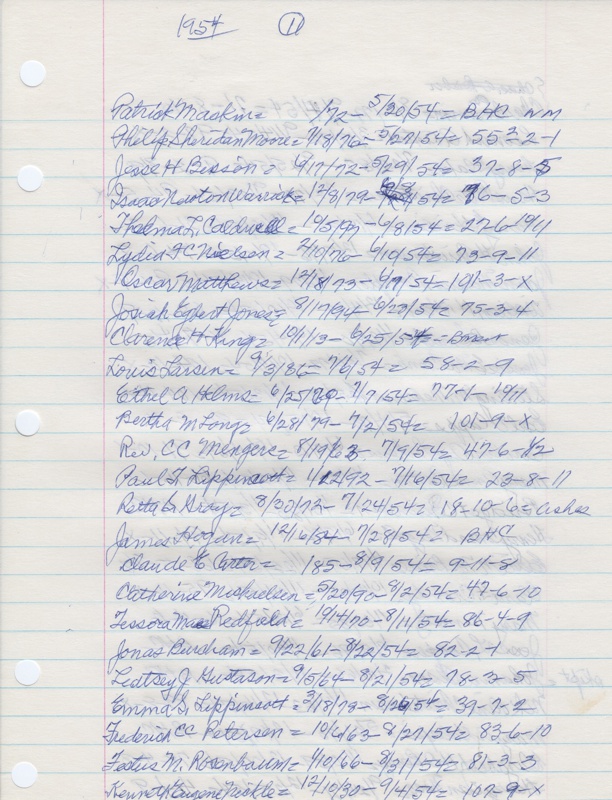 1954 11
Patrick Maskin= 1/72 - 5/20/54 = BHC NM
Philip Sheridan Moore = 9/18/76 - 5/27/54 = 55²-2-1
Jesse H Bisson = 9/17/72 - 5/29/54 = 37-8-5
Isaac Newton Warrick = 12/8/79 - /54 = 76-5-3
Thelma L. Caldwell = 10/5/97 - 6/8/54 = 27-6-10/11
Lydia F C Nielson = 2/10/76 - 6/10/54 = 73-9-11
Oscar Matthews = 12/18/73 - 6/9/54 = 101-3-X
Josiah Egbert Jones = 8/17/94 - 6/23/54 = 75-3-4
Clarence H King = 10/1/13 - 6/25/54 =
Louis Larsen = 9/3/86 = 7/6/54 = 58-2-9
Ethel A Helms = 6/25/79 - 7/7/54 = 77-1-10/11
Bertha M Long = 6/28/79 - 7/2/54 = 101-9-X
Rev. CC Mengers = 8/19/63 - 7/9/54 = 47-6-1/2
Paul F. Lippincott = 1/22/92 - 7/16/54 = 23-8-11
Retta G Gray = 8/30/72 - 7/24/54 = 18-10-6 = ashes
James Hogan = 12/6/84 - 7/28/54 = BHC
Claude E Carter = 185 - 8/9/54 = 9-11-8
Catherine Mickelsen = 5/20/90 - 9/2/54 = 47-6-10
Tessora Mae Redfield = 10/14/70 - 8/11/54 = 86-4-9
Jonas Burcham = 9/22/61 - 8/22/54 = 82-2-1
J. Gustason = 9/5/64 - 8/21/54 = 78-3-5
Emma S. Lippincott = 3/18/73 - 8/26/54 = 39-7-2
Frederick CC Petersen = 10/6/63 - 8/27/54 = 83-6-10
Festus M. Rosenbaum = 1/10/66 - 8/31/54 = 81-3-3
Kenneth Eugene Nickle = 12/10/30 - 9/4/54 = 107-9-X